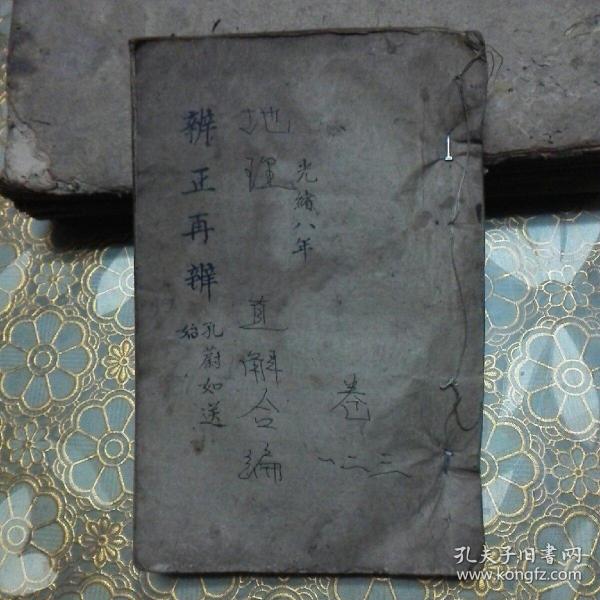 光緒八年
卷
一二三
地理
直解合編
辨正再辨
孔蔚如送
孔夫子旧书网
www.kongfz.com